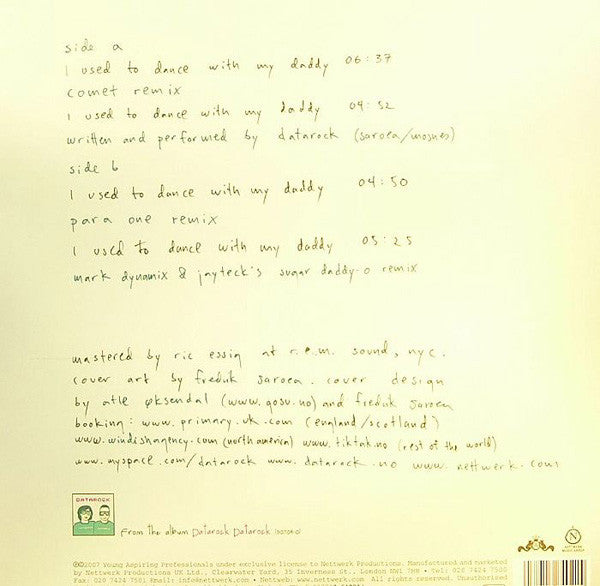 side a
I used to dance with my daddy 06:37
comet remix
I used to dance with my daddy 04:52
written and performed by datarock (saroea/mosnes)
side b
I used to dance with my daddy 04:50
para one remix
I used to dance with my daddy 05:25
mark dynamix & jayteck's sugar daddy-o remix
mastered by ric essig at r.e.m. sound, nyc.
cover art by fredrik saroea. cover design
by atle øksendal (www.gosu.no) and fredrik saroea
booking: www.primary.uk.com (england/scotland)
www.windishagency.com (north america) www.tiktak.no (rest of the world)
www.myspace.com/datarock www.datarock.no www.nettwerk.com
DATAROCK
From the album Datarock Datarock
N
NETTWERK
℗©2007 Young Aspiring Professionals under exclusive license to Nettwerk Productions. Manufactured and marketed
by Nettwerk Productions UK Ltd., Clearwater Yard, 35 Inverness St., London NW1 7HB • Tel: 020 7424 7500
Fax: 020 7424 7501 Email: info@nettwerk.com • Nettweb: www.nettwerk.com. All rights reserved. Unauthorized